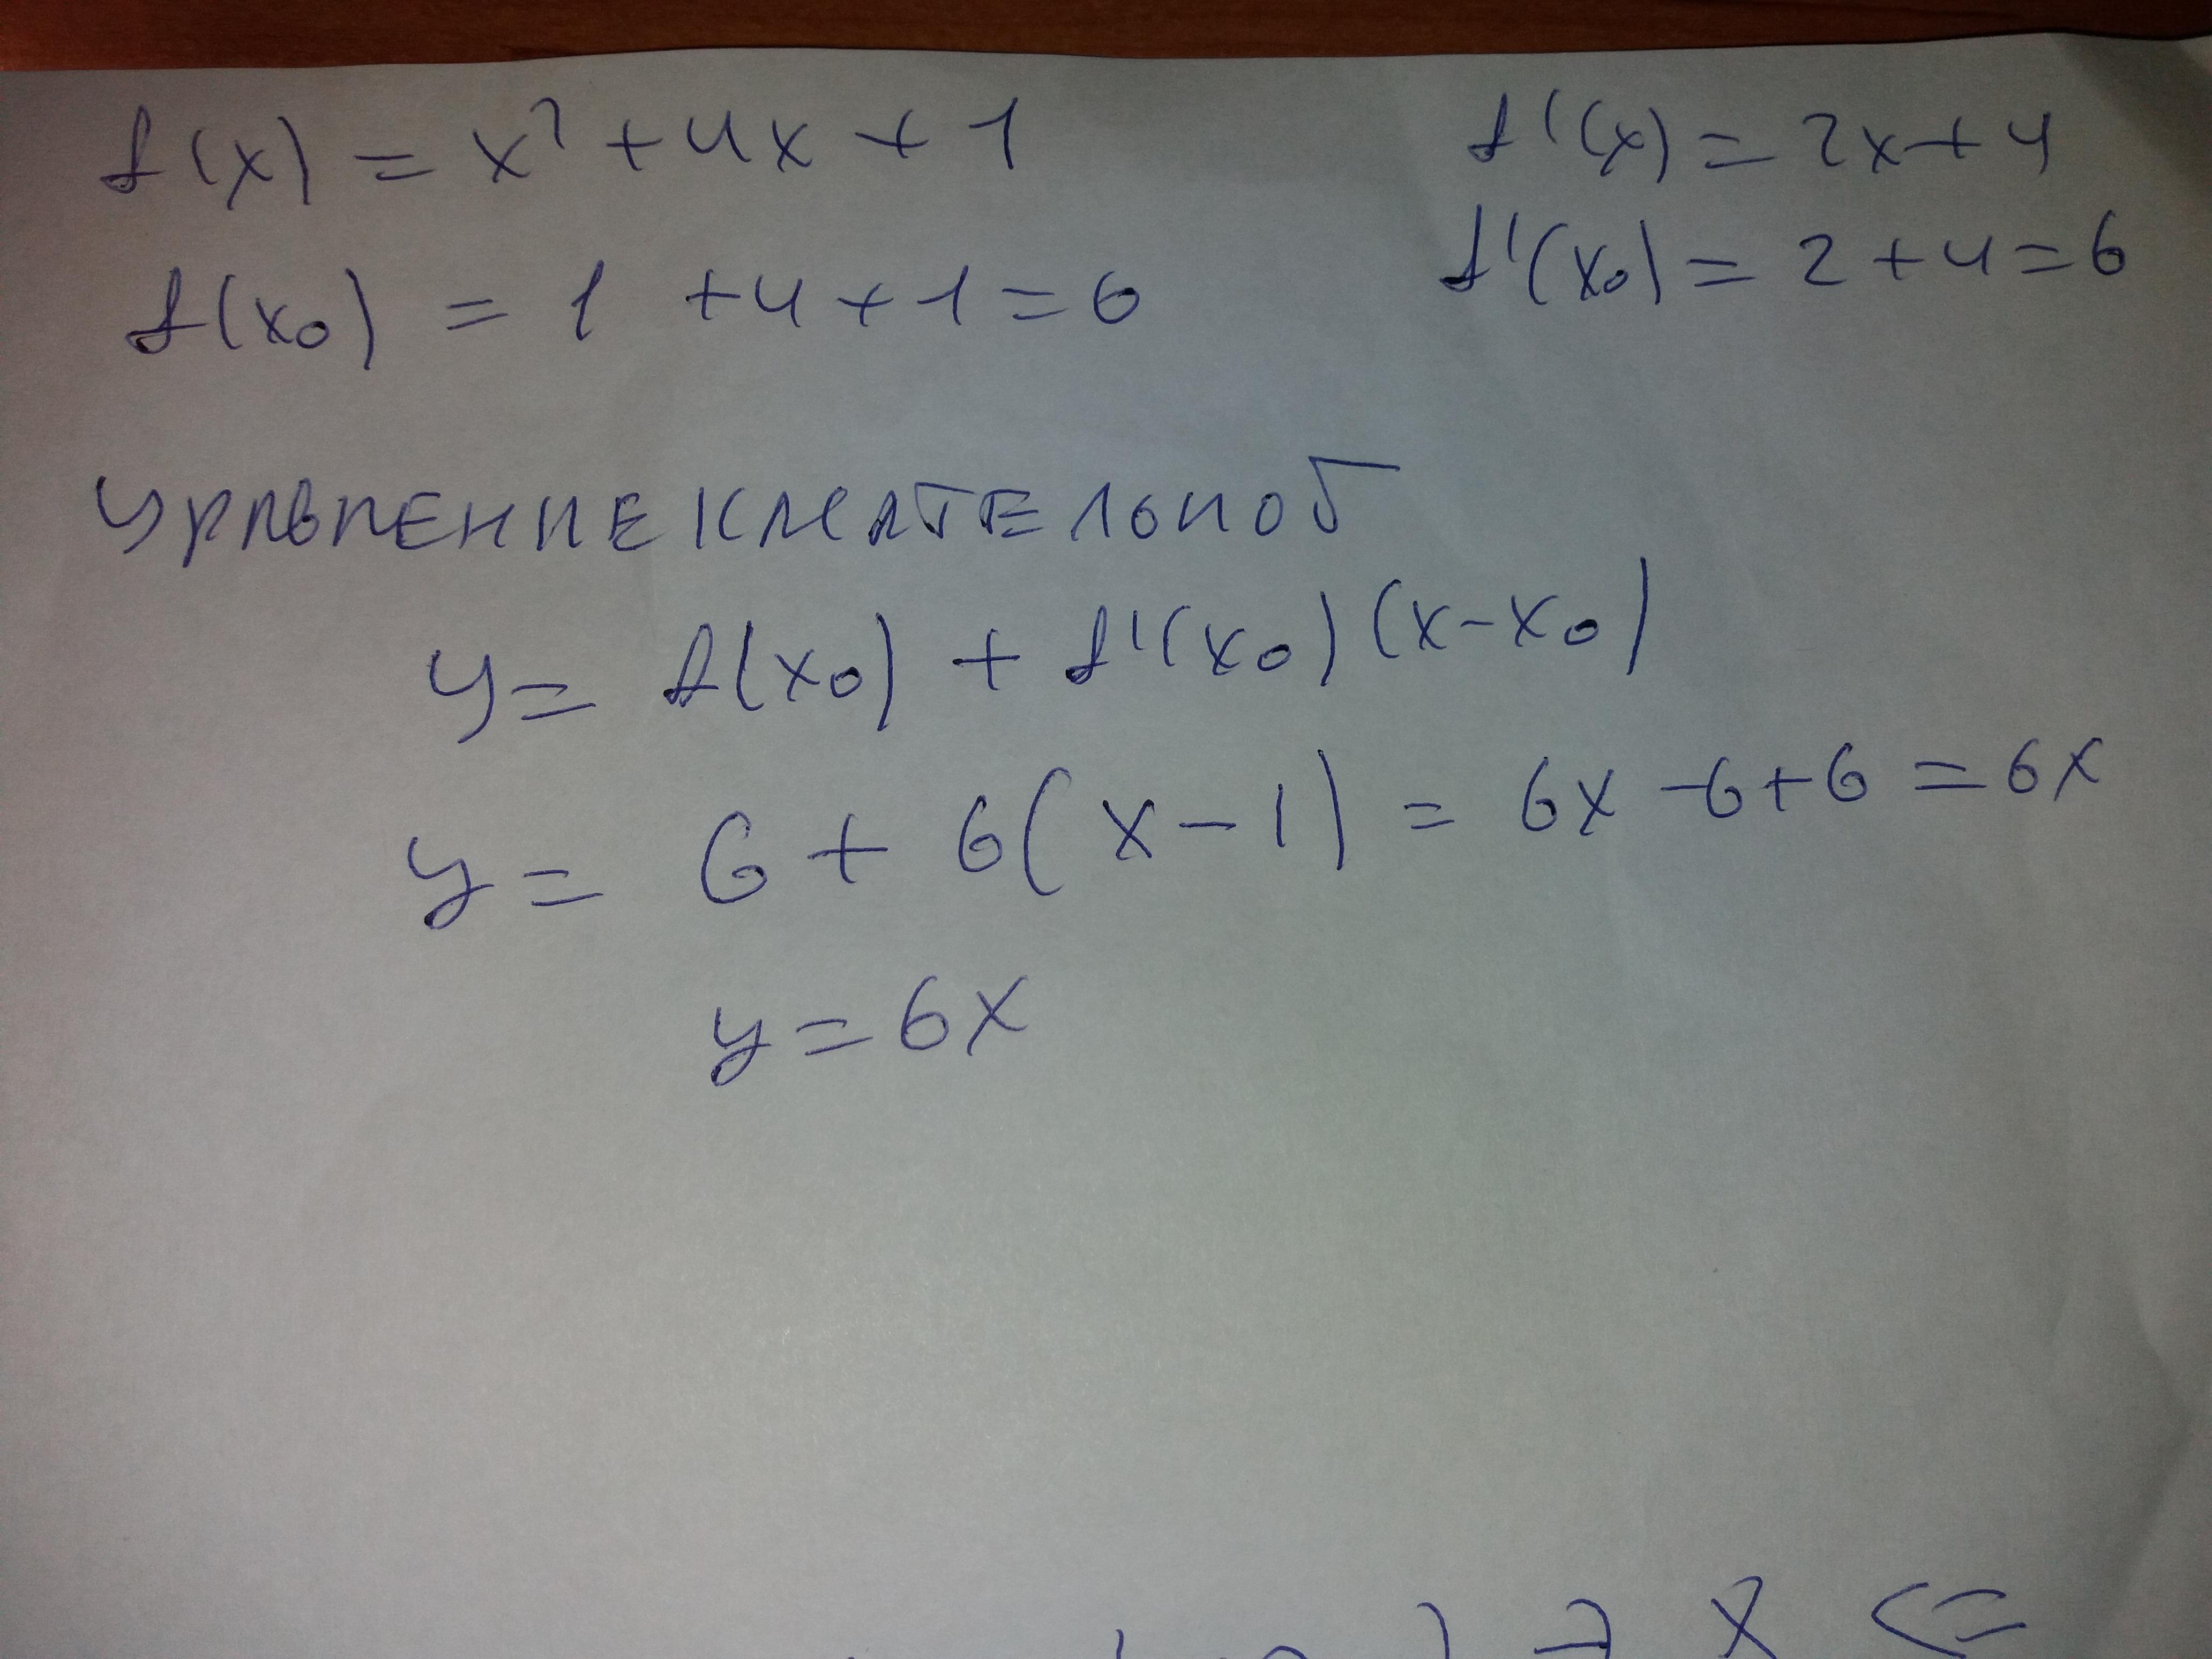 f(x) = x² + 4x + 1
f'(x) = 2x + 4
f(x₀) = 1 + 4 + 1 = 6
f'(x₀) = 2 + 4 = 6
УРАВНЕНИЕ КАСАТЕЛЬНОЙ
y = f(x₀) + f'(x₀)(x-x₀)
y = 6 + 6(x - 1) = 6x - 6 + 6 = 6x
y = 6x